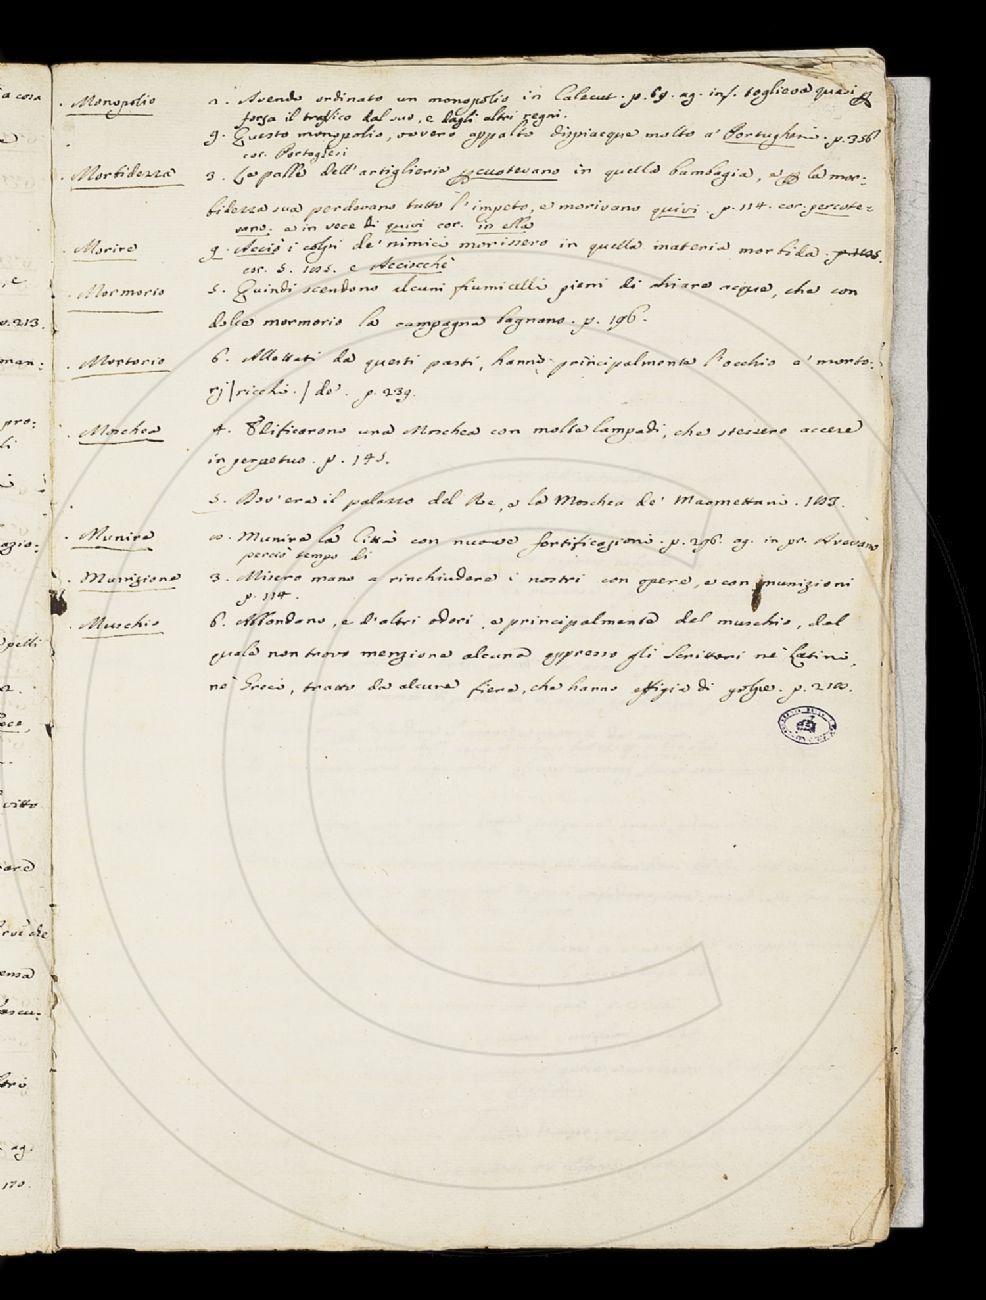 Monopolio 2. Avendo ordinato un monopolio in Calecut. p. 69. ag. inf. toglieva quasi per
forza il traffico dal suo, e dagli altri regni.
9. Questo monopolio, ovvero appalto dispiacque molto a' Portughesi. p. 356
cor. Portoghesi
Morbidezza 3. Le palle dell'artiglieria percuotevano in quella bambagia, e per la mor=
bidezza sua perdevano tutto l'impeto, e morivano quivi. p. 114. cor. percote=
vano. e in vece di quivi cor. in ella
Morire 9. Acciò i colpi de' nimici morissero in quella materia morbida.
cor. e Acciocchè
Mormorio 5. Quindi scendono alcuni fiumicelli pieni di chiare acque, che con
dolce mormorio la campagna bagnano. p. 196.
Mortorio 6. Allettati da questi pasti, hanno principalmente l'occhio a' morto=
rj | ricchi. | de'. p. 239.
Moschea 4. Edificarono una Moschea con molte lampadi, che stessero accese
in perpetuo. p. 145.
5. Dov'era il palazzo del Re, e la Moschea de' Maomettani. 183.
Munire 10. Munire la Città con nuove fortificazioni. p. 296. ag. in pr. Avevano
perciò tempo di
Munizione 3. Misero mano a rinchiudere i nostri con opere, e con munizioni
p. 114.
Muschio 6. Abbondano, e d'altri odori, e principalmente del muschio, del
quale non trovo menzione alcuna appresso gli Scrittori nè Latini,
nè Greci, tratto da alcune fiere, che hanno effigie di golpe. p. 210.